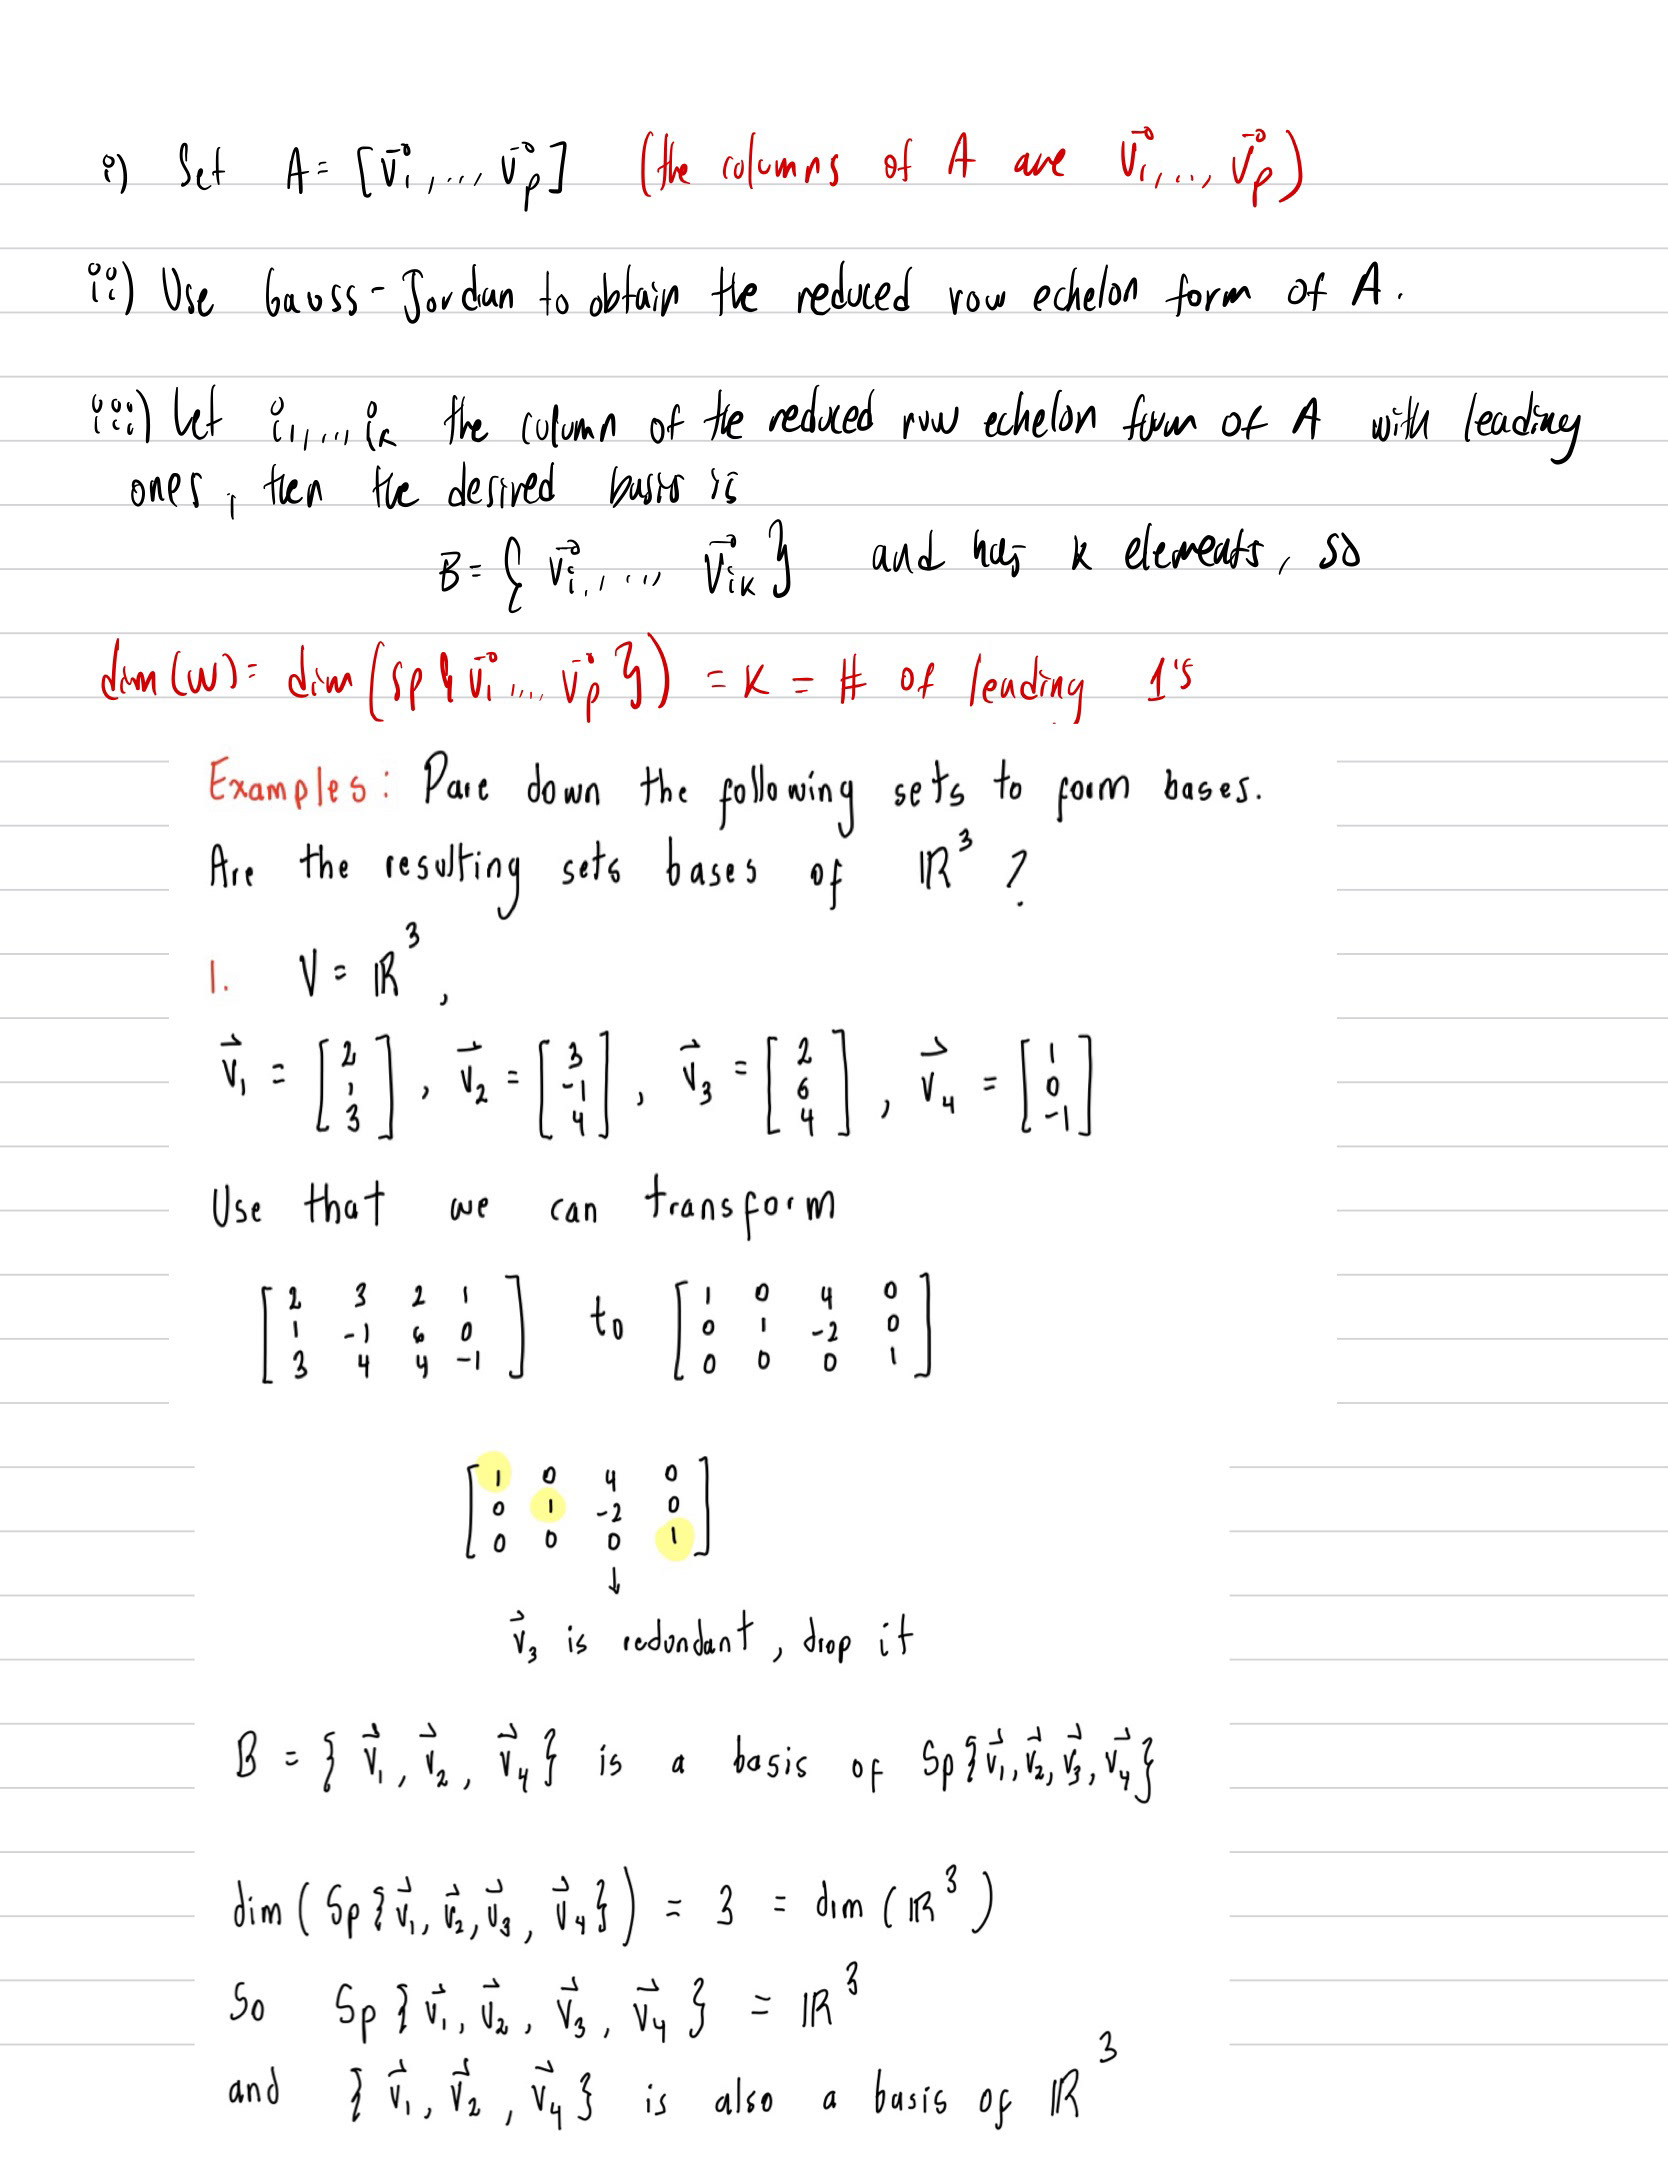 i) Set A = [v⃗₁,..., v⃗ₚ] (the columns of A are v⃗₁,..., v⃗ₚ)
ii) Use Gauss-Jordan to obtain the reduced row echelon form of A.
iii) Let i₁,..., iₖ the column of the reduced row echelon form of A with leading
ones, then the desired basis is
B = { v⃗ᵢ₁,..., v⃗ᵢₖ } and has k elements, so
dim(W) = dim(Sp{v⃗₁...., v⃗ₚ}) = K = # of leading 1's
Examples: Pare down the following sets to form bases.
Are the resulting sets bases of ℝ³ ?
1. V = ℝ³,
v⃗₁ = [2 1 3], v⃗₂ = [3 -1 4], v⃗₃ = [2 6 4], v⃗₄ = [1 0 -1]
Use that we can transform
[2 3 2 1 to [1 0 4 0
1 -1 6 0 0 1 -2 0
3 4 4 -1] 0 0 0 1]
[1 0 4 0
0 1 -2 0
0 0 0 1]
↓
v⃗₃ is redundant, drop it
B = { v⃗₁, v⃗₂, v⃗₄ } is a basis of Sp{v⃗₁, v⃗₂, v⃗₃, v⃗₄}
dim(Sp{v⃗₁, v⃗₂, v⃗₃, v⃗₄}) = 3 = dim(ℝ³)
So Sp{v⃗₁, v⃗₂, v⃗₃, v⃗₄} = ℝ³
and {v⃗₁, v⃗₂, v⃗₄} is also a basis of ℝ³